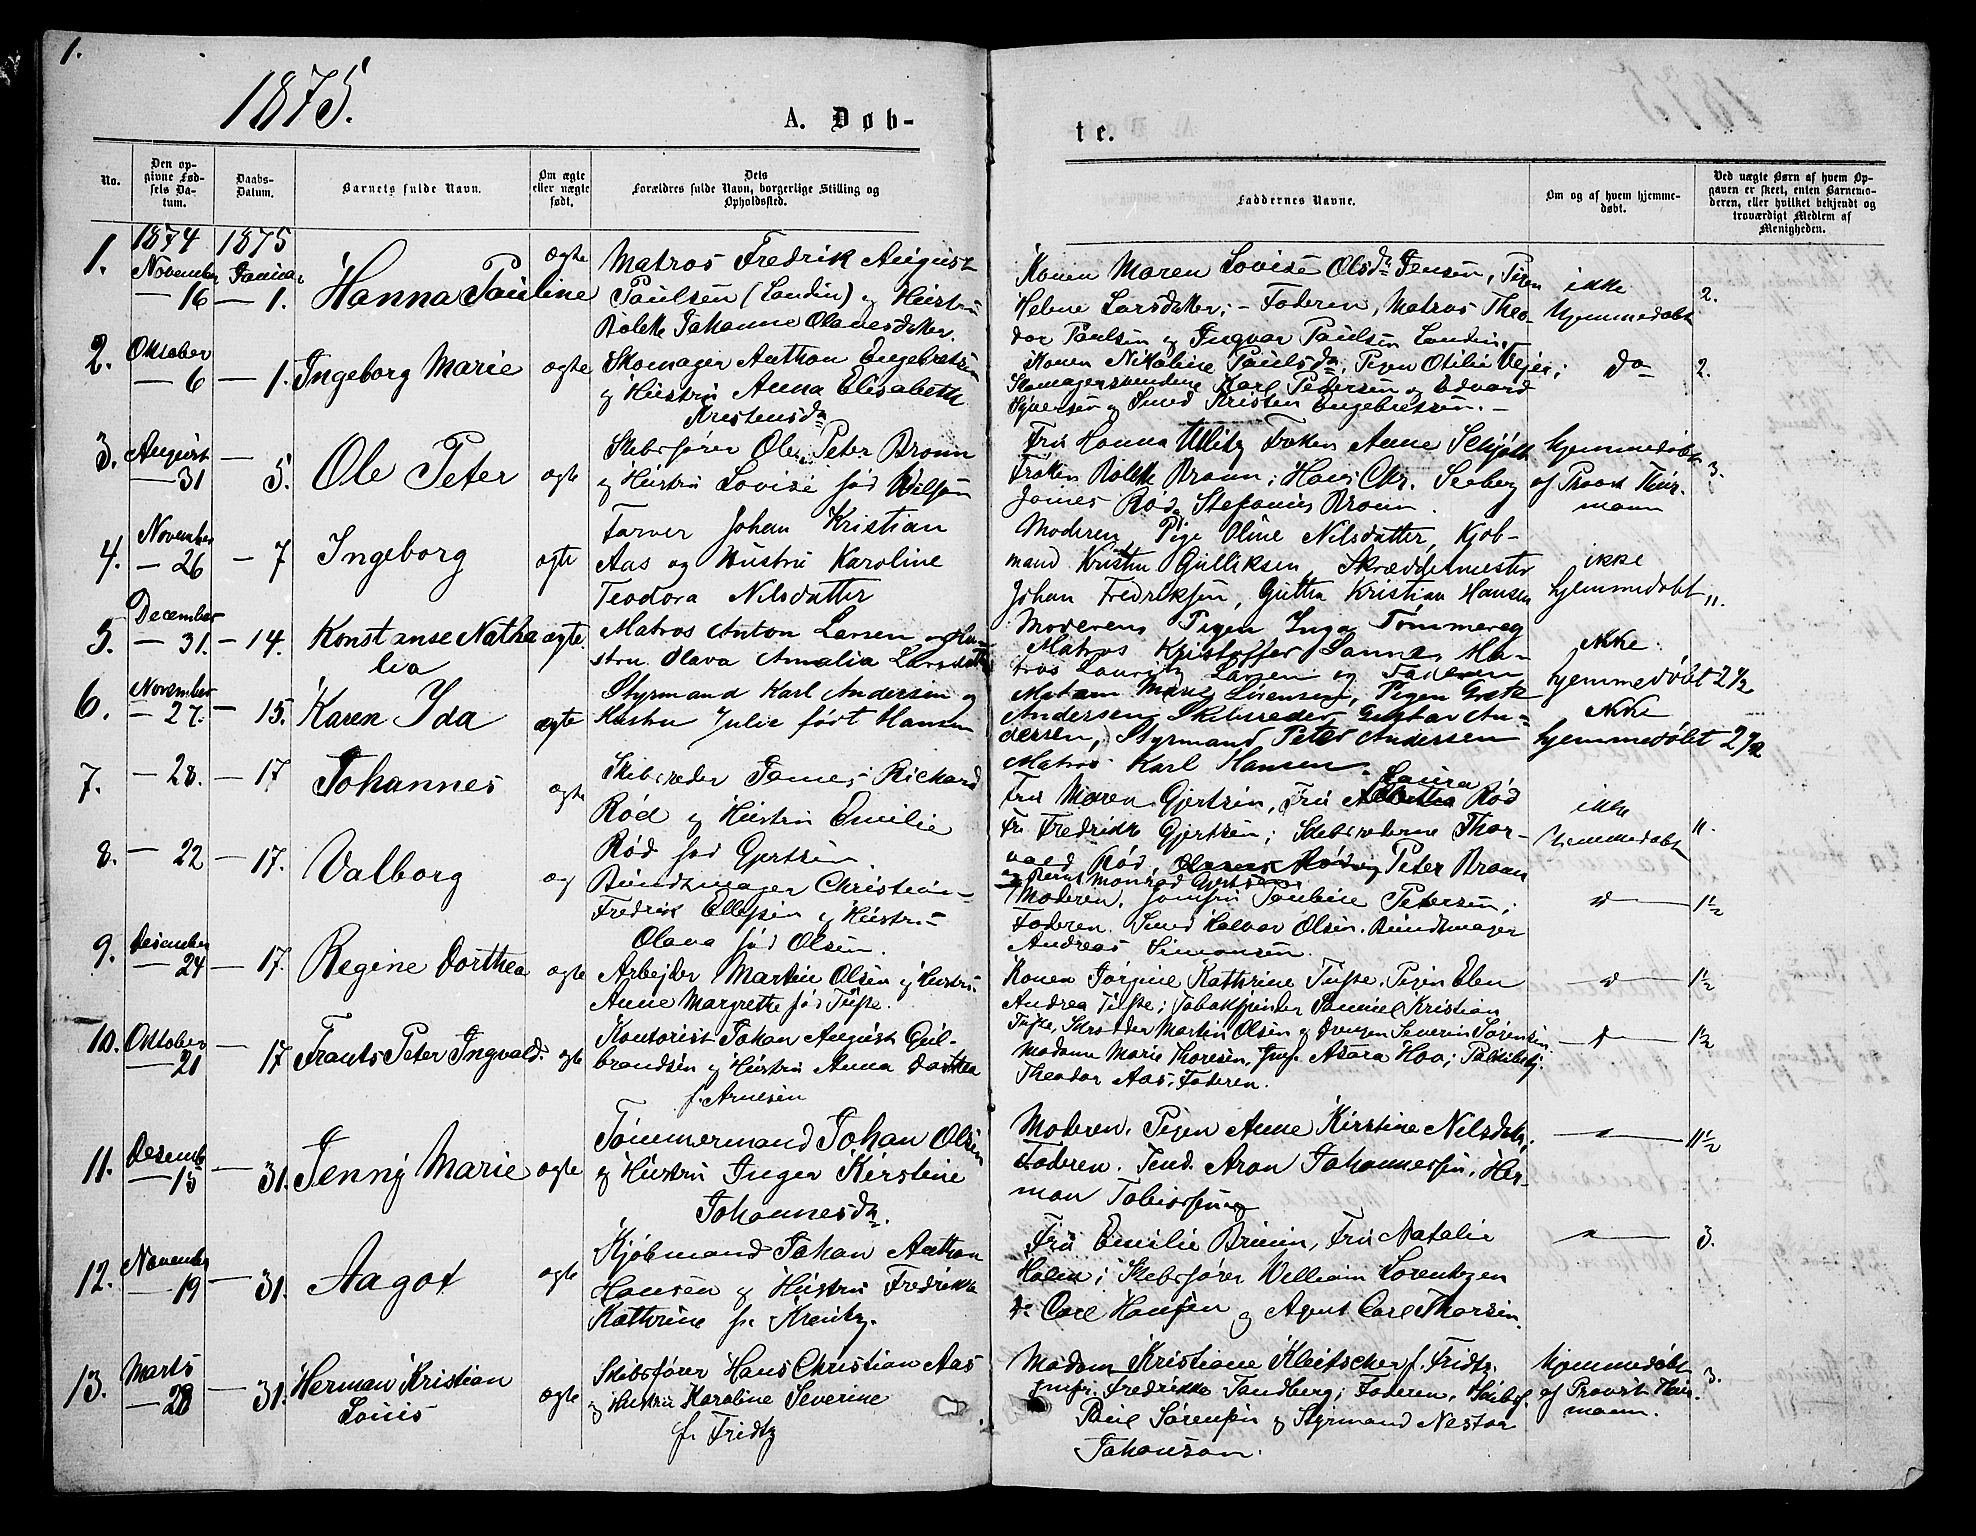 1.
1875.
A. Døb-
te.
No.
Den opgivne Fødsels Datum.
Daabs-Datum.
Barnets fulde Navn.
Om ægte eller uægte født.
Dets Forældres fulde Navn, borgerlige Stilling og Opholdssted.
Faddernes Navne.
Om og af hvem hjemmedøbt.
Ved uægte Børn af hvem Opgaven er skeet, enten Barnemoderen, eller hvilket bekjendt og troværdigt Medlem af Menigheden.
1874 1875
1. November 16 Januar 1. Hanna Pauline ægte
Matros Fredrik August
Paulsen (Landin) og Hustru
Bolette Johanne Olavesdatter.
Konen Maren Lovise Olsdr Jensen, Pigen
Helene Larsdatter; - Faderen, Matros Theo-
dor Paulsen og Ingvar Paulsen Landin.
ikke hjemmedøbt 2.
2. Oktober 6 — 1. Ingeborg Marie ægte
Skomager Anthon Engebretsen
og Hustru Anna Elisabeth
Kristensda
Konen Nikoline Paulsda, Pigen Otilie Vejer;
Skomagersvendene Karl Pedersen og Edvard
Syversen og Smed Kristen Engebretsen. —
do 2.
3. August 31 — 5. Ole Peter ægte
Skibsfører Ole Peter Bruun
og Hustru Lovise fød Wilson
Fru Hanna Ulitz Frøken Anne Schjøtt
Frøken Bolette Bruun; Hans Chr. Seeberg
James Rød, Stefanius Bruun.
hjemmedøbt af Provst Thurmann 3.
4. November 26 — 7 Ingeborg ægte
Farver Johan Kristian
Aas og Hustru Karoline
Teodora Nilsdatter
Moderen, Pige Oline Nilsdatter, Kjøb-
mand Kristen Gulliksen, Skræddermester
Johan Fredriksen, Gutten Kristian Hansen
ikke hjemmedøbt ".
5. December 31. — 14. Konstanse Nathalia ægte.
Matros Anton Larsen og Hu-
stru Olava Amalia Larsdatter
Moderen, Pigen Inga Tømmereg
Matros Kristoffer Sanne, Ma-
tros Lauritz Larsen og Faderen
Ikke hjemmedøbt 2 1/2
6. November 27. — 15. Karen Ida ægte
Styrmand Karl Andersen og
Hustru Julie født Hansen
Madam Marie Sørensen, Pigen Grete
Andersen, Skibsreder Gustav An-
dersen, Styrmand Peter Andersen
Matros Karl Hansen.
Ikke hjemmedøbt 2 1/2
7. — 28. — 17 Johannes ægte
Skibsreder James Richard
Rød og Hustru Emilie
Rød fød Gjertsen.
Fru Maren Gjertsen, Fru Laura Rød
Fr. Fredrikke Gjertsen; Skibsrederne Thor-
vald Rød, Peter Bruun
og Bernt Monrad Gjertsen
ikke hjemmedøbt ".
8. — 22 — 17. Valborg æg
Bundtmager Christian
Fredrik Ellefsen og Hustru
Olava fød Olsen.
Moderen, Jomfru Pauline Petersen;
Faderen. Smed Halvor Olsen. Bundtmager
Andreas Simonsen.
1 1/2
9. Desember 24 — 17. Regine Dorthea ægte
Arbejder Martin Olsen og Hustru
Anne Margrethe fød Tufte.
Konen Jørgine Kathrine Tufte. Pigen Elen
Andrea Tufte; Tobakspinder Samuel Kristian
Tufte, Skrædder Martin Olsen og Drengen Severin Sørensen
1 1/2
10. Oktober 21 — 17 Frants Peter Ingvald. ægte
Kontorist Johan August Gul-
brandsen og Hustru Anna Dorthea
f. Arnesen
Madame Marie Thoresen, Jmf. Asora Hoa;
Theodor Aas, Faderen.
1 1/2
11. Desemb 15 — 31. Jenny Marie ægte
Tømmermand Johan Olsen
og Hustru Inger Kirstine
Johannesda.
Moderen, Pigen Anne Kirstine Nilsdatr.
Faderen. Tend. Aron Johannessen, Her-
man Tobiassen
11 1/2
12. November 19 — 31. Aagot ægte
Kjøbmand Johan Anthon
Hansen og Hustru Fredrikke
Kathrine f. Kreutz.
Fru Emilie Bruun, Fru Natalie
Holm; Skibsfører William Lorentzen
do Carl Hansen og Agent Carl Thorsen.
3.
13. Marts 28 — 31. Herman Kristian Louis ægte
Skibsfører Hans Christian Aas
og Hustru Karoline Severine
f. Fridtz
Madam Kristiane Kleitscher f. Fridtz.
Jmfr. Fredrikke Sandberg; Faderen, Skibsf.
Paul Sørensen og Styrmand Nestor
Johanson.
hjemmedøbt af Provst Thurmann. 3.